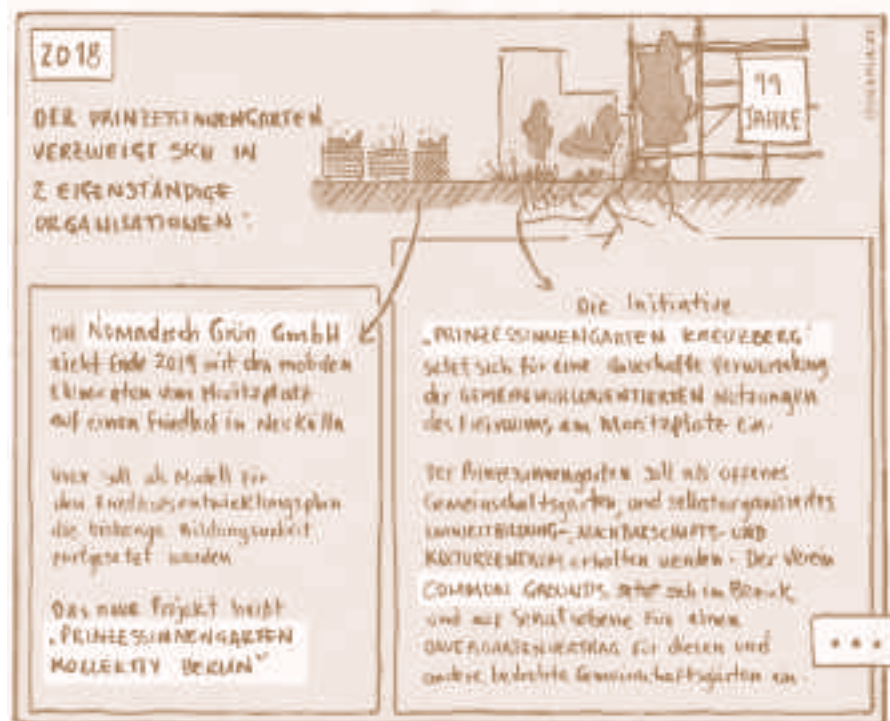 2018
DER PRINZESSINNENGARTEN
VERZWEIGT SICH IN
2 EIGENSTÄNDIGE
ORGANISATIONEN:
99
JAHRE
Die Nomadisch Grün GmbH
zieht Ende 2019 mit den mobilen
vom Moritzplatz
auf einen Friedhof in Neukölln
Hier soll als Modell für
den Friedhofsentwicklungsplan
die bisherige Bildungsarbeit
fortgesetzt werden
Das neue Projekt heißt
„PRINZESSINNENGARTEN
KOLLEKTIV BERLIN"
Die Initiative
„PRINZESSINNENGARTEN KREUZBERG"
setzt sich für eine dauerhafte
der GEMEINWOHLORIENTIERTEN Nutzungen
des Freiraums am Moritzplatz ein.
Der Prinzessinnengarten soll als offenes
Gemeinschaftsgarten, und selbstorganisiertes
UMWELTBILDUNG-NACHBARSCHAFTS-UND
KULTURZENTRUM erhalten werden. Der Verein
COMMON GROUNDS setzt sich im Bezirk
und auf Senatsebene für einen
DAUERGARTENVERTRAG für diesen und
andere bedrohte Gemeinschaftsgärten ein.
...